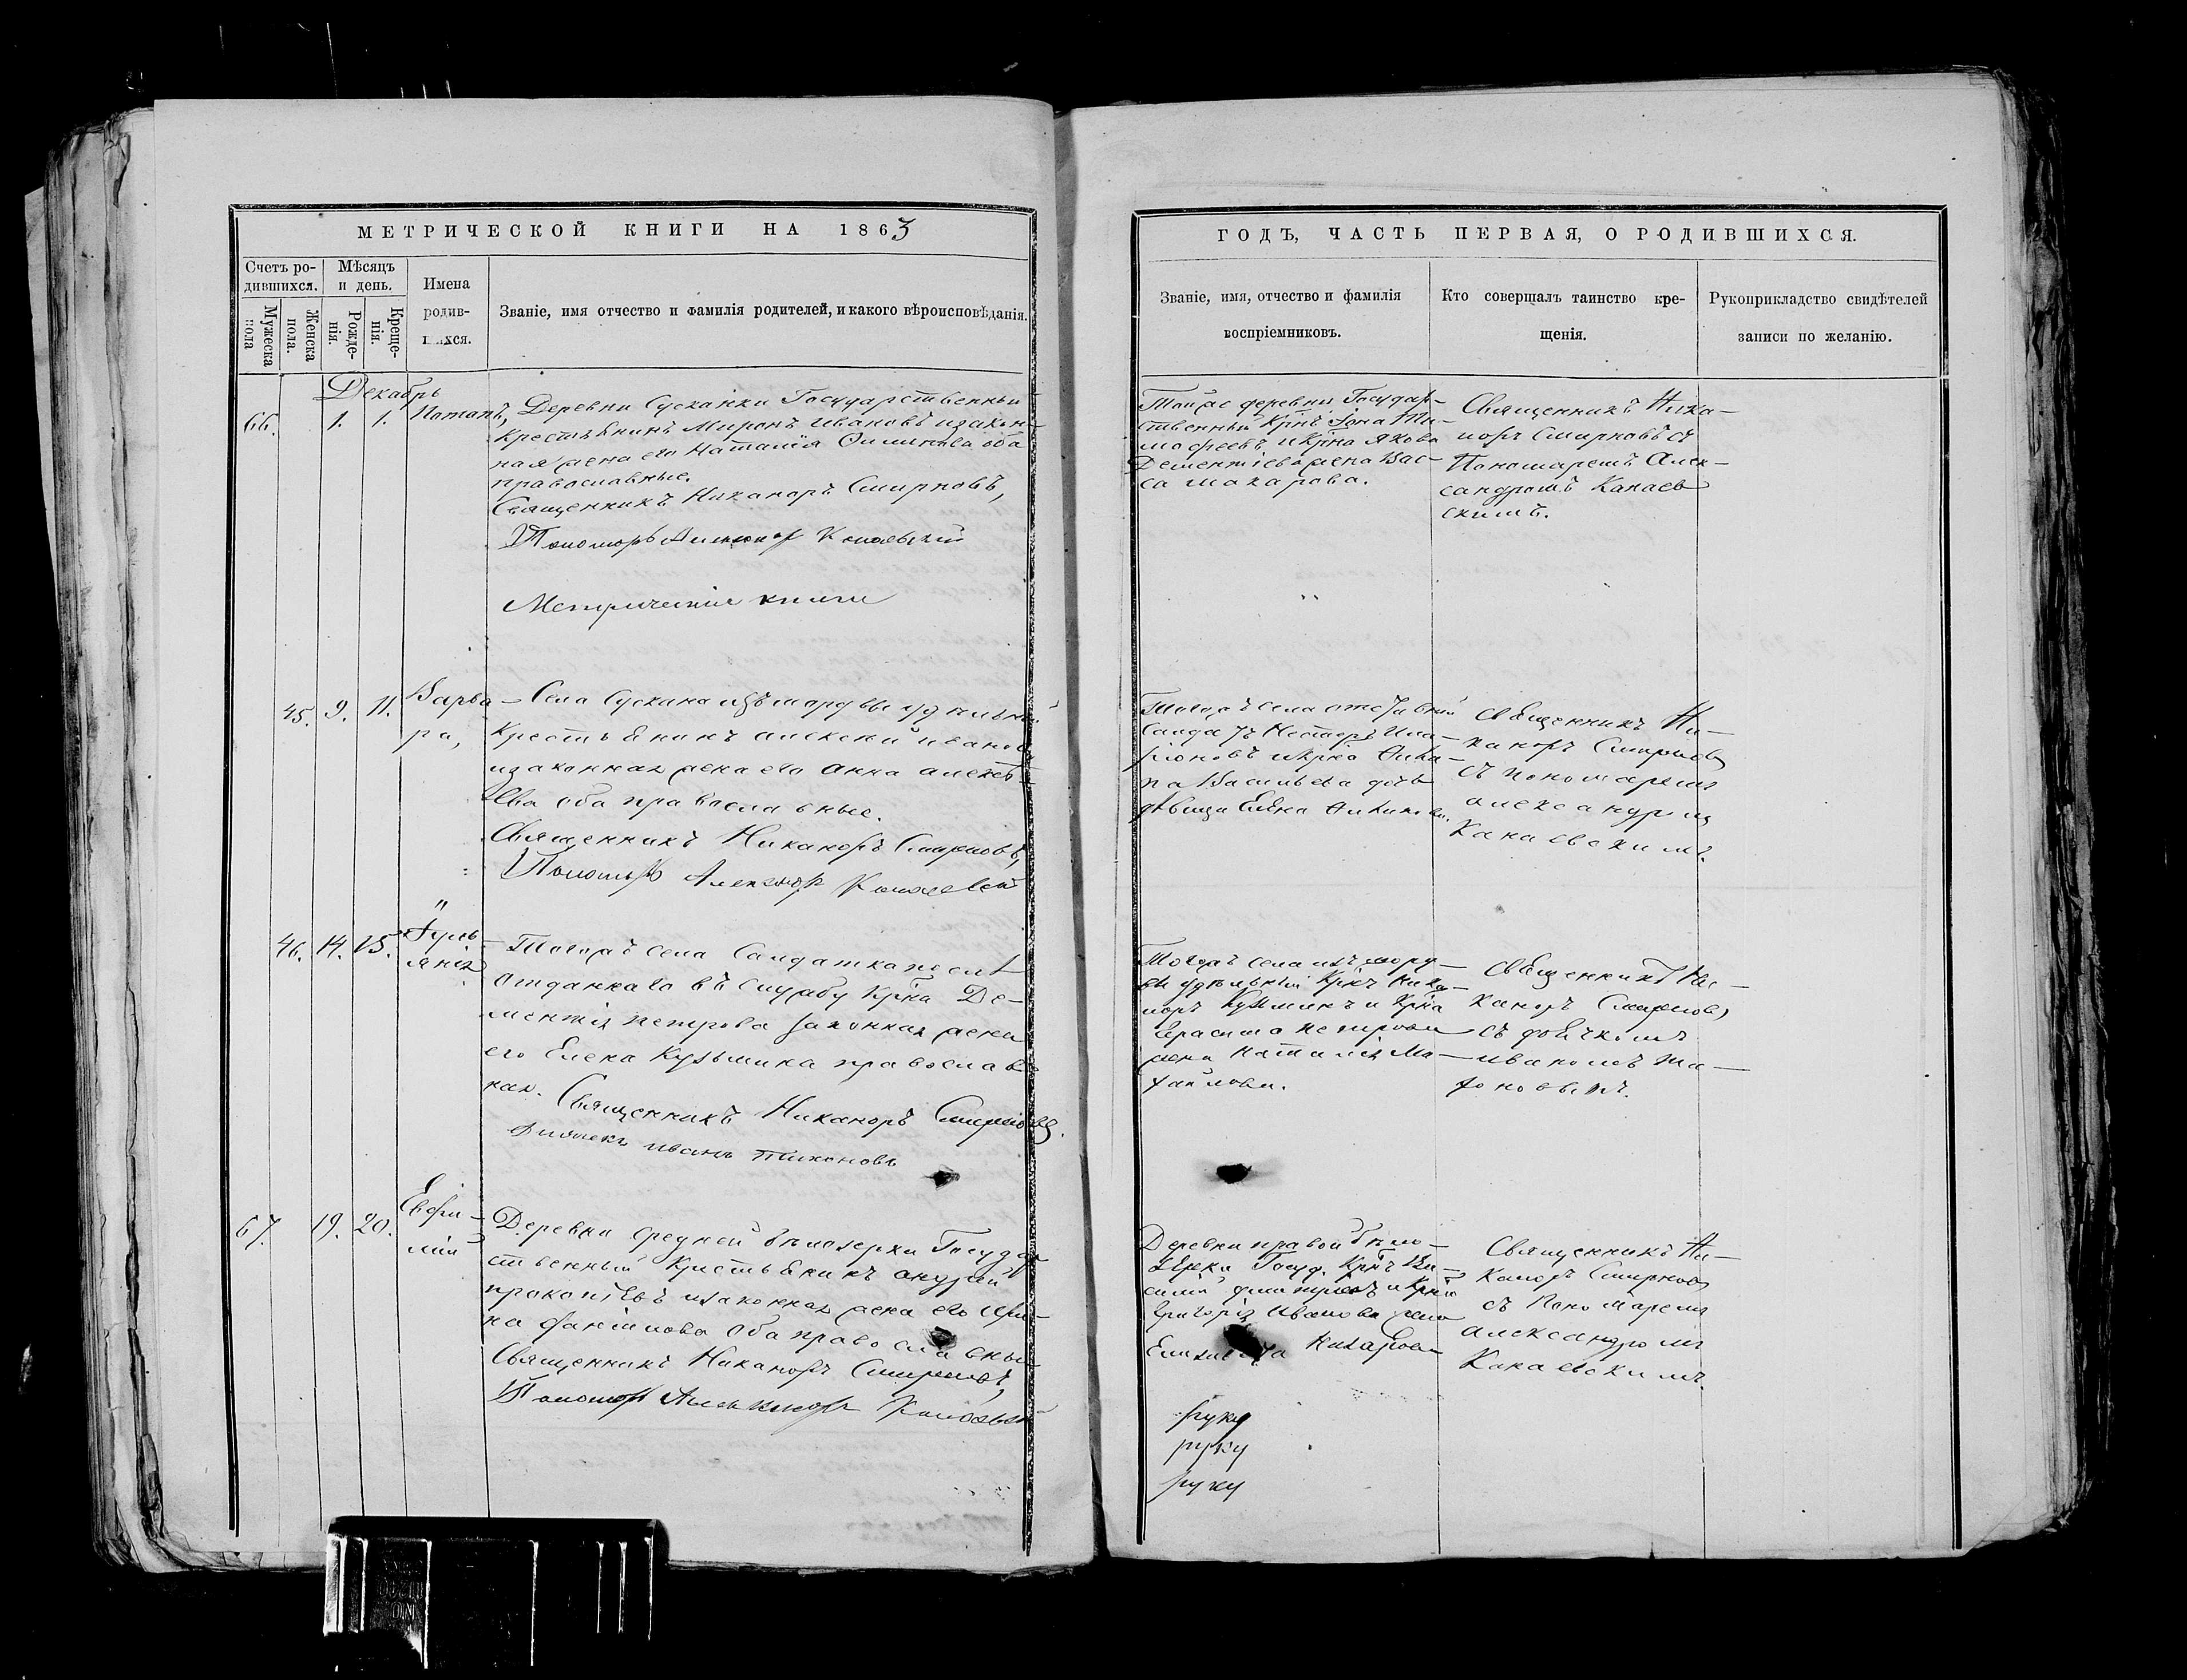 МЕТРИЧЕСКОЙ КНИГИ НА 1863
Счетъ ро-
дившихся.
Мужеска
пола
Женска
пола.
Мѣсяцъ
и день.
Рожде-
нія.
Креще-
нія.
Имена
родив-
хся.
Званіе, имя отчество и фамилія родителей, и какого вѣроисповѣданія.
Декабрь
66. 1. 1. Потапъ,
Деревни Сускинки Государственный
Крестьянинъ Миронъ Ивановъ и закон-
ная жена его Наталія оба
православные.
Священникъ Никаноръ Смирновъ,
Пономарь Канаевскій
Метрическія книги
45. 9. 11. Варва-
ра,
Села Сускина изъ мордвы удѣльный
Крестьянинъ Алексей Иванов
и законная жена его Анна Алексѣ-
ева оба православные.
Священникъ Никаноръ Смирновъ,
Пономарь Александръ Канаевскій
46. 14. 15.
Тогожъ села Салдатка послѣ
отданнаго въ службу Кр̃на Де-
ментія Петрова законная жена
его Елена Кузьмина православ
ная. Священникъ Никаноръ Смирновъ.
Дьячекъ Иванъ Тихоновъ
67. 19. 20. Евфи-
мій
Деревни средней бѣлозерки Государ
ственный Крестьянинъ Андрей
Прокопіевъ и законная жена его Ири-
на оба православны
Священникъ Никаноръ Смирновъ,
Пономарь Александръ Канаевскій
ГОДЪ, ЧАСТЬ ПЕРВАЯ, О РОДИВШИХСЯ.
Званіе, имя, отчество и фамилія
воспріемниковъ.
Кто совершалъ таинство кре-
щенія.
Рукоприкладство свидѣтелей
записи по желанію.
Тойже деревни Государ-
ственный Кр̃нъ Іона Ти-
мофеевъ и Кр̃на Якова
Дементіева жена Вас-
са Макарова.
Священникъ Ника-
норъ Смирновъ съ
Пономаремъ Алек-
сандромъ Канаев
скимъ.
Тогожъ села отставной
Салдатъ Несторъ Ила-
ріоновъ и Кр̃на
Васильева
дѣвица Елена
Священникъ Ни-
каноръ Смирновъ
съ пономаремъ
александромъ
Канаевскимъ.
Тогожъ села изъ морд-
вы удѣльный Кр̃нъ Ника-
норъ Кузминъ и Кр̃на
Герасима Петрова
жена Наталія Ми-
хайлова.
Священникъ Ни-
каноръ Смирновъ
съ дьячкомъ
Иваномъ Ти-
хоновымъ.
Деревни правой бѣло-
зерки Госуд. Кр̃нъ Ва-
силій Дмитріевъ и Кр̃на
Григорія Иванова жена
Елизавета
Священникъ Ни-
каноръ Смирновъ
съ Пономаремъ
александромъ
Канаевскимъ.
руку
руку
руку